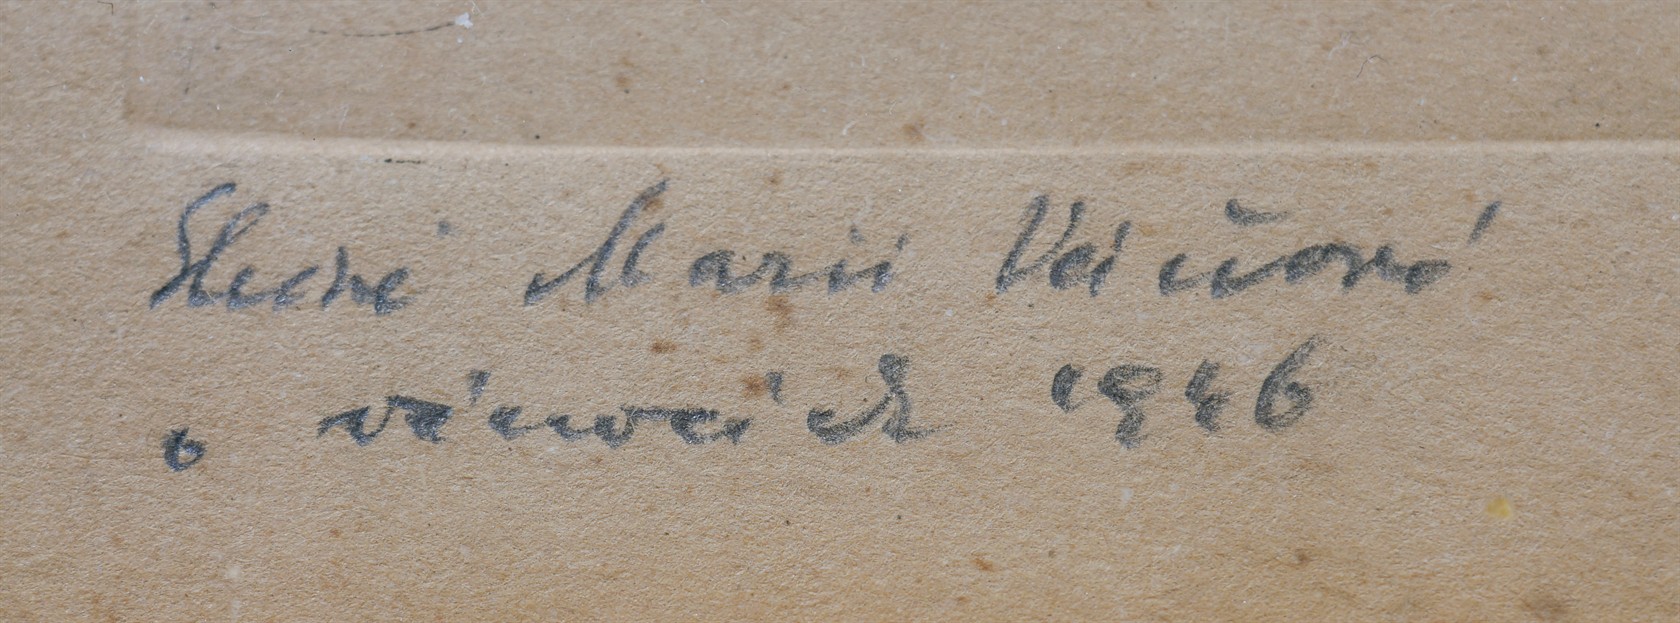 Slečně Marii
o vánocích 1946